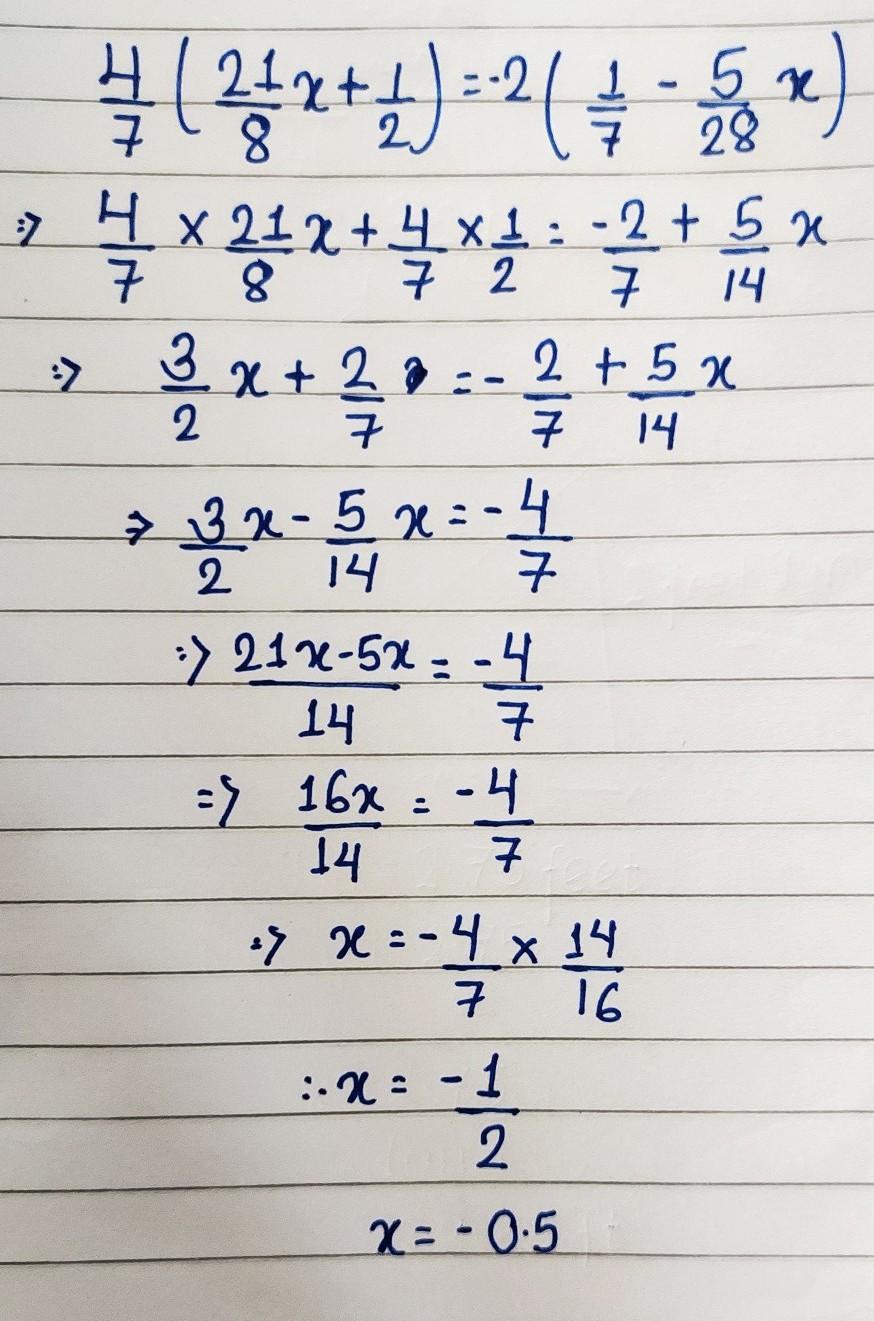 4/7 ( 21/8 x + 1/2 ) = -2 ( 1/7 - 5/28 x )
⇒ 4/7 × 21/8 x + 4/7 × 1/2 = -2/7 + 5/14 x
⇒ 3/2 x + 2/7 = - 2/7 + 5/14 x
⇒ 3/2 x - 5/14 x = - 4/7
⇒ (21x - 5x)/14 = -4/7
⇒ 16x/14 = -4/7
⇒ x = - 4/7 × 14/16
∴ x = - 1/2
x = - 0.5